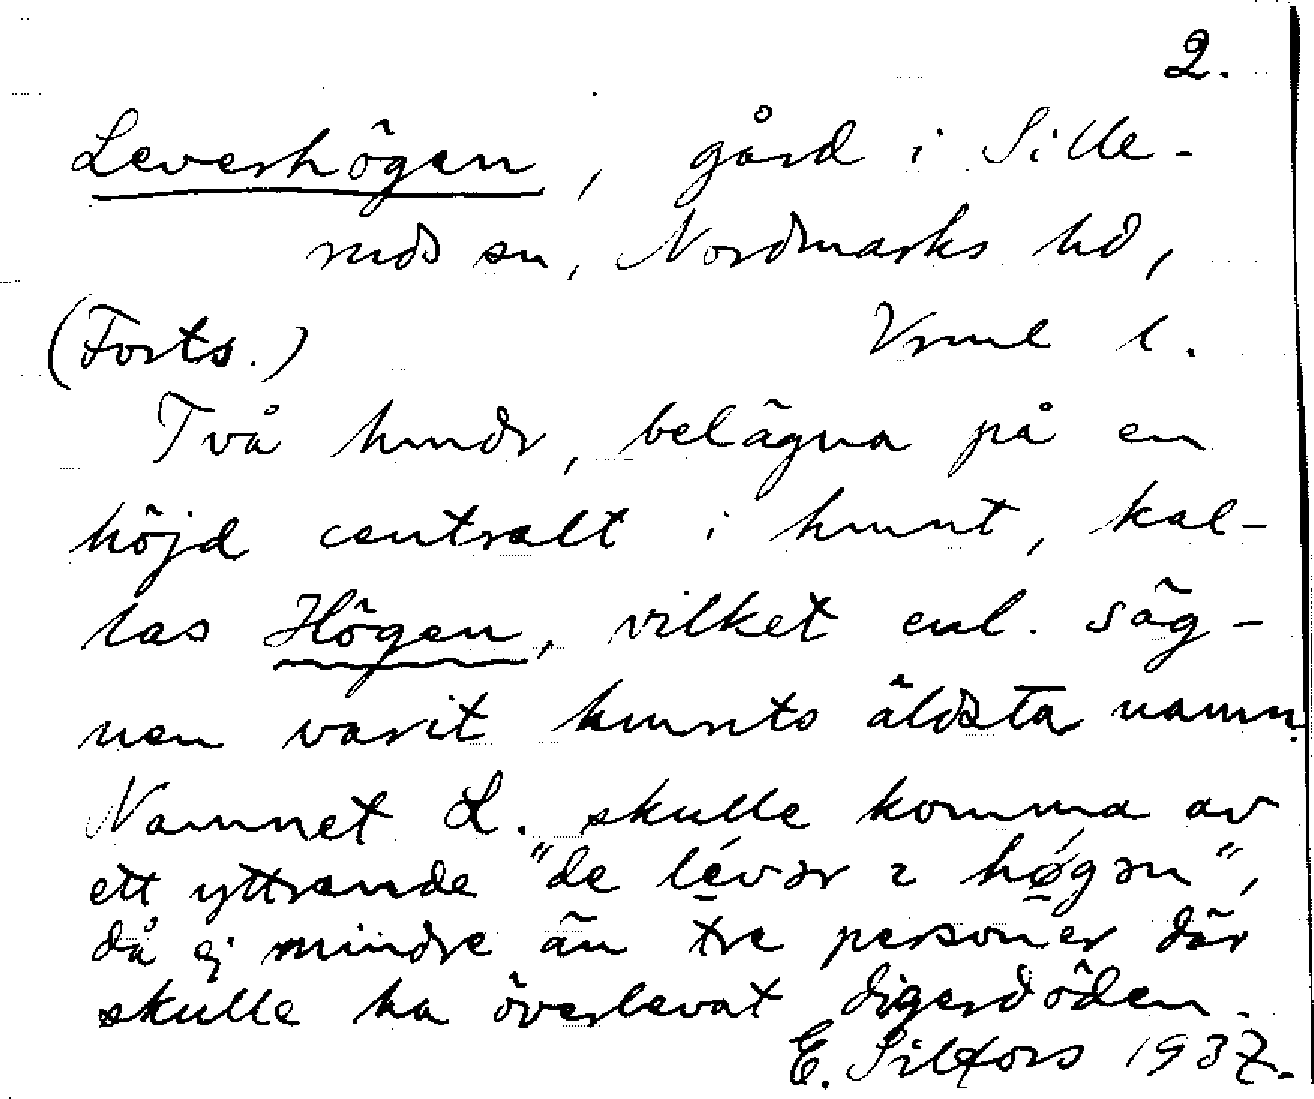 2.
Leverhögen, gård i Sille-
ruds sn, Nordmarks hd,
(Forts.) Vrml l.
Två hmdr, belägna på en
höjd centralt i hmnt, kal-
las Högen, vilket enl. säg-
nen varit hmnts äldsta namn.
Namnet L. skulle komma av
ett yttrande "de lévər ɩ hǿgən",
då ej mindre än tre personer där
skulle ha överlevat digerdöden.
E. Silfors 1937.